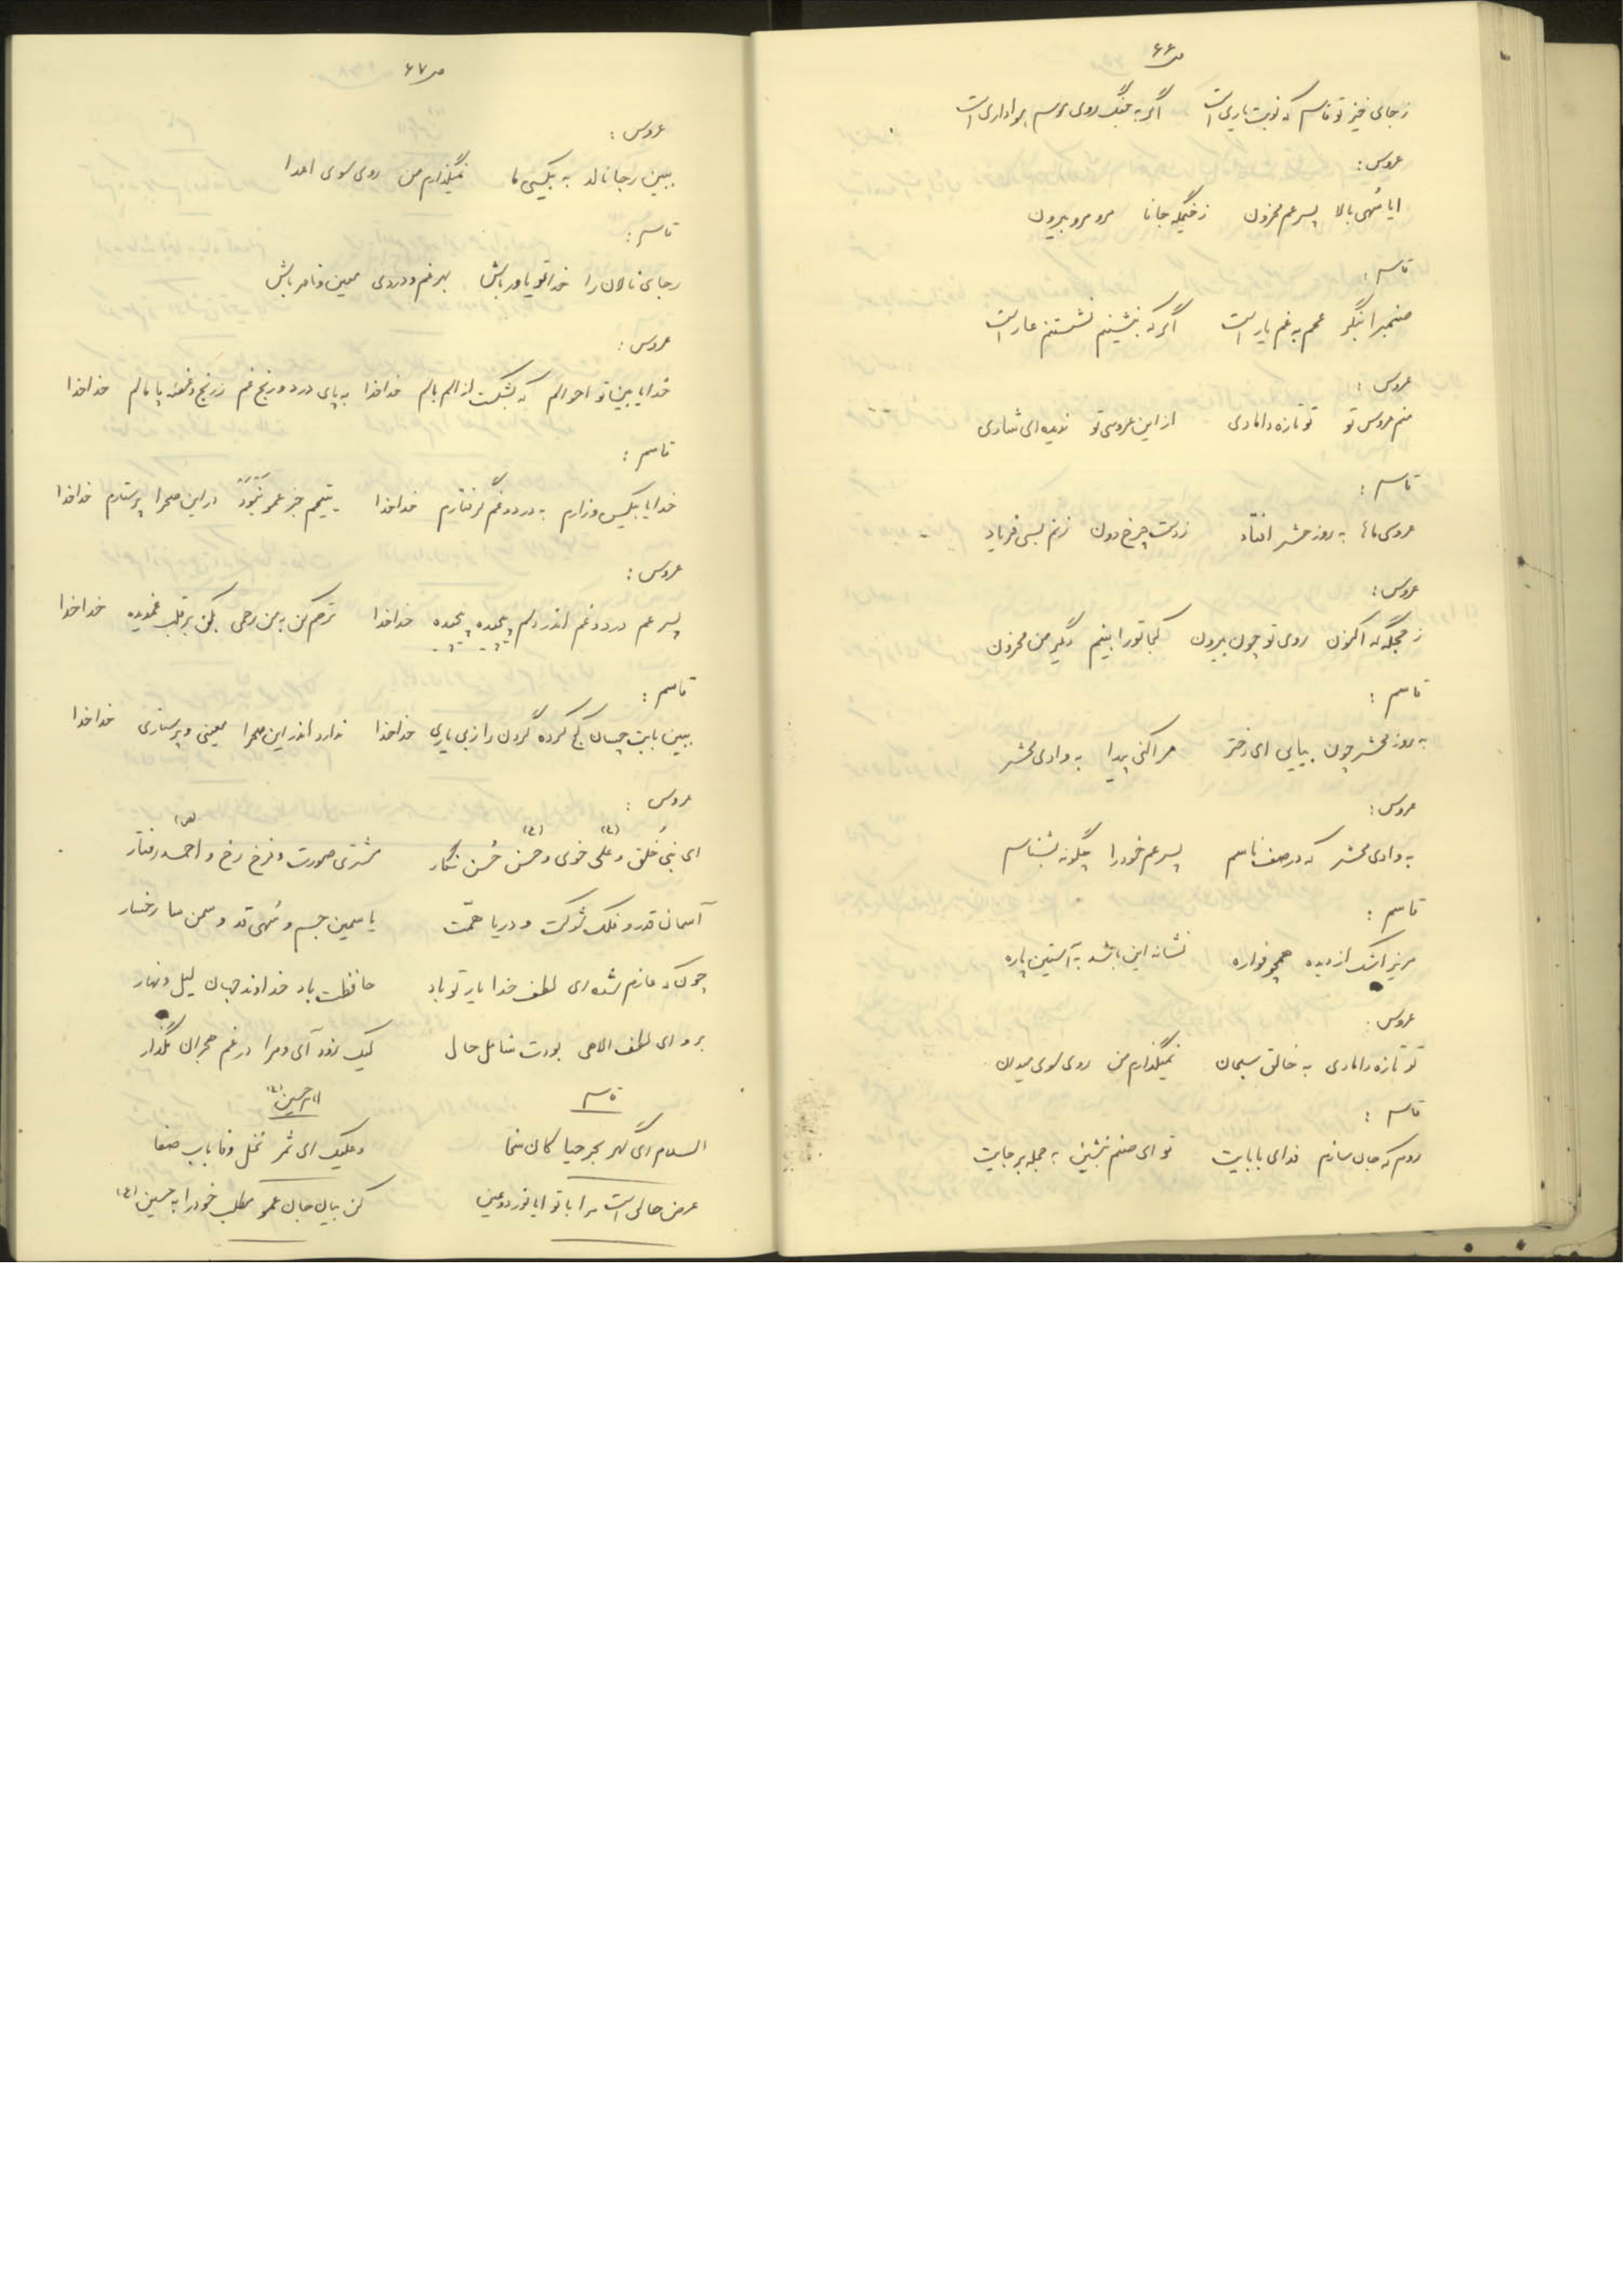 ص۶۶
ز جای خیز تو قاسم که نوبت یاری است اگر به جنگ روی موسم هواداری است
عروس :
ایا سُهی بالا پسر عم محزون ز خیمگه جانا مرو مرو بیرون
قاسم :
صنم برا بنگر عمم به غم یار است اگر که بنشینم نشستنم عار است
عروس :
منم عروس تو تو تازه دامادی از این عروسی تو ندیده‌ای شادی
قاسم :
عروسی ماها به روز حشر افتاد ز دست چرخ دون زنم بسی فریاد
عروس :
ز حجله‌گه اکنون روی تو چون بیرون کجا تو را بینم دگر من محزون
قاسم :
به روز محشر چون بیایی ای دختر مرا کنی پیدا به وادی محشر
عروس :
به وادی محشر که در صف ناسم پسر عم خود را چگونه بشناسم
قاسم :
مریز اشک از دیده همچو فواره نشانه این باشد به آستین پاره
عروس :
تو تازه دامادی به خالق سبحان نمیگذارم من روی سوی میدان
قاسم :
روم که جان سازم فدای بابایت تو ای صنم بنشین به حجله بر جایت
ص۶۷
عروس :
ببین رجا نالد به بیکسی ما نمیگذارم من روی سوی اعدا
قاسم :
رجای نالان را خدا تو یاور باش بهر غم و دردی معین و ناصر باش
عروس :
خدایا بین تو احوالم که بشکست از الم بالم خدا خدا به پای درد و رنج غم ز رنج و غصه پامالم خدا خدا
قاسم :
خدایا بیکس و زارم به درد و غم گرفتارم خدا خدا یتیمم جز عمو نَبوَد در این صحرا پرستارم خدا خدا
عروس :
پسر عم درد و غم اندر دلم پیچیده پیچیده خدا خدا ترحم کن به من رحمی بکن بر قلب غمدیده خدا خدا
قاسم :
ببین بابت چسان کج کرده گردن را ز بی یاری خدا خدا ندارد اندر این صحرا معینی و پرستاری خدا خدا
عروس :
ای نبی خُلق و علی (ع) خوی و حسن (ع) حُسن نگار مشتری صورت و فرخ رخ و احمد (ص) رفتار
آسمان قدر و فلک شوکت و دریا همّت یاسمین جسم و سُهی قد و سمن سا رخسار
چون که عازم شده‌ای لطف خدا یار تو باد حافظت باد خداوند جهان لیل و نهار
برو ای لطف الاهی بودت شامل حال لیک زود آی و مرا در غم هجران مگذار
قاسم امام حسین (ع)
السلام ای گهر بحر حیا کان سخا وعلیک ای ثمر نخل وفا باب صفا
عرض حالی است مرا با تو ایا نور دو عین کن بیان جان عمو مطلب خود را به حسین (ع)